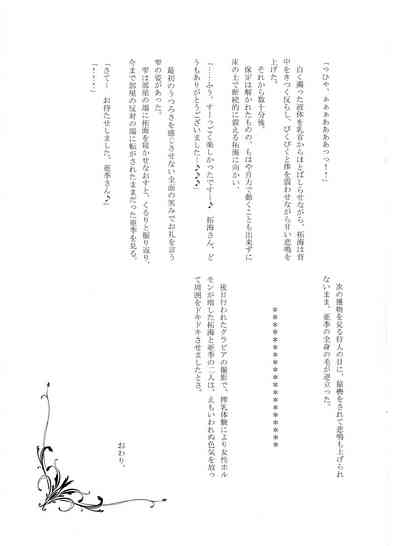 「つひゃ、ああぁああああっっ！」
白く濁った液体を乳首からほとばしらせながら、拓海は背
中をきつく反らし、びくびくと体を震わせながら甘い悲鳴を
上げた。
それから数十分後。
保定は解かれたものの、もはや自力で動くことも出来ずに
床の上で断続的に震える拓海に向かい、
「……ふう、すーっごく楽しかったですー♪ 拓海さん、ど
うもありがとうございました…♪♪♪」
最初のうつろさを感じさせない全面の笑みでお礼を言う
雫の姿があった。
雫は部屋の端に拓海を寝かせなおすと、くるりと振り返り、
今まで部屋の反対の端に転がされたままだった亜季を見る。
「さてー お待たせしました、亜季さん♪」
「！！！」
次の獲物を見る狩人の目に、猿轡をされて悲鳴も上げられ
ないまま、亜季の全身の毛が逆立った。
＊＊＊＊＊＊＊＊＊＊＊＊＊＊
後日行われたグラビアの撮影で、搾乳体験により女性ホル
モンが増した拓海と亜季の二人は、えもいわれぬ色気を放っ
て周囲をドキドキさせましたとさ。
おわり。